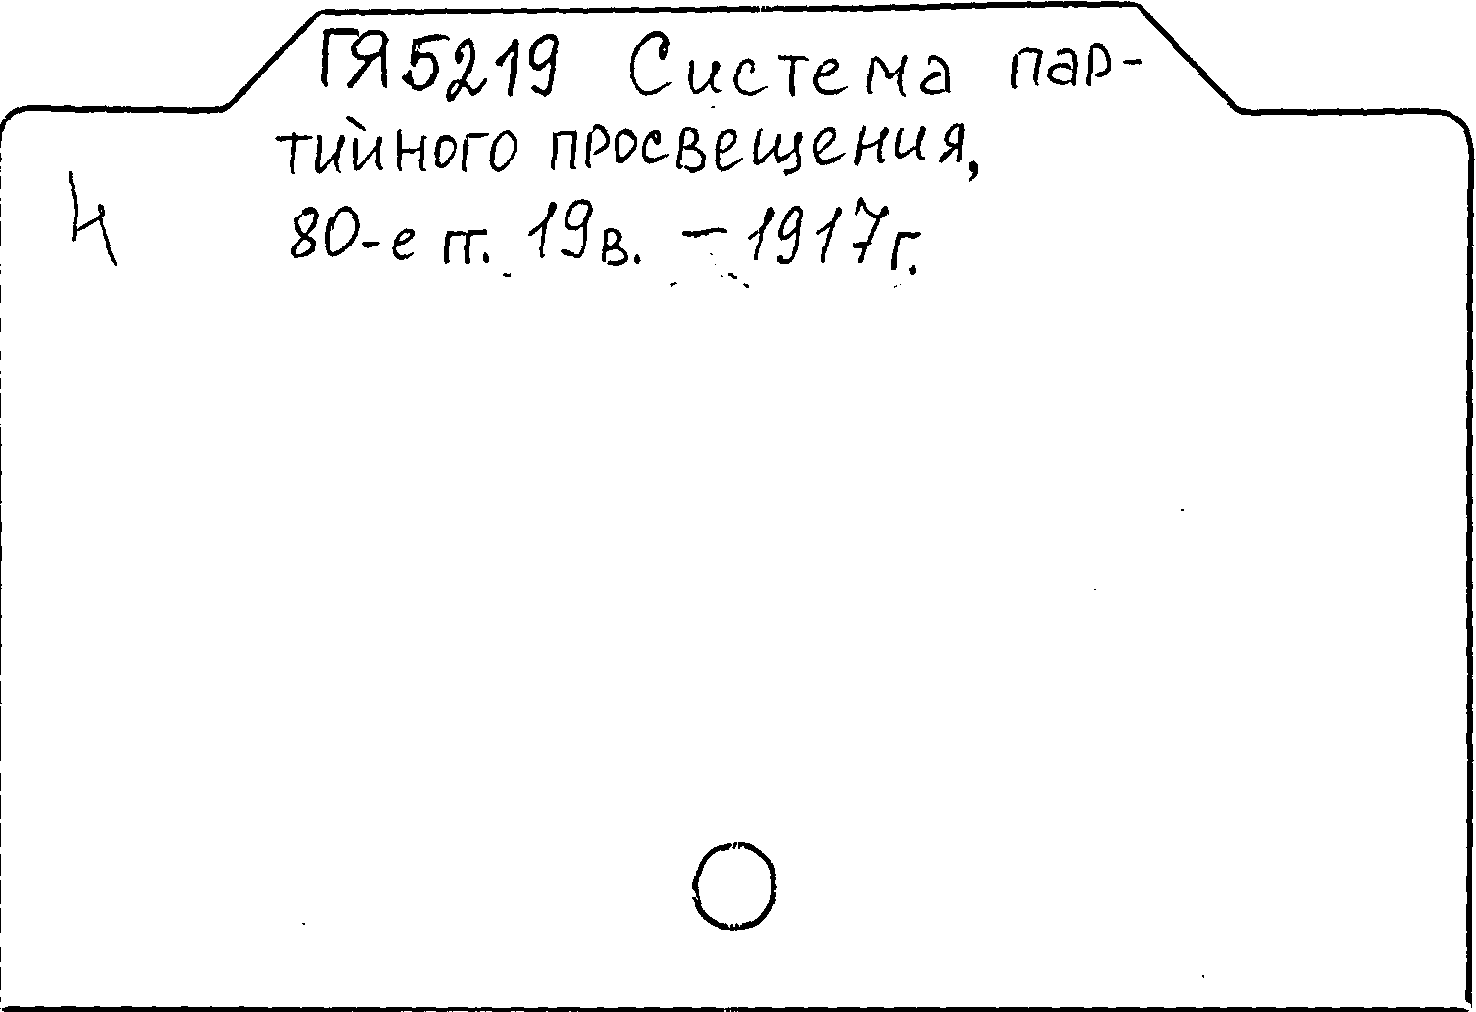 ГЯ5219 Система пар-
тийного просвещения,
80-е гг. 19в. – 1917г.